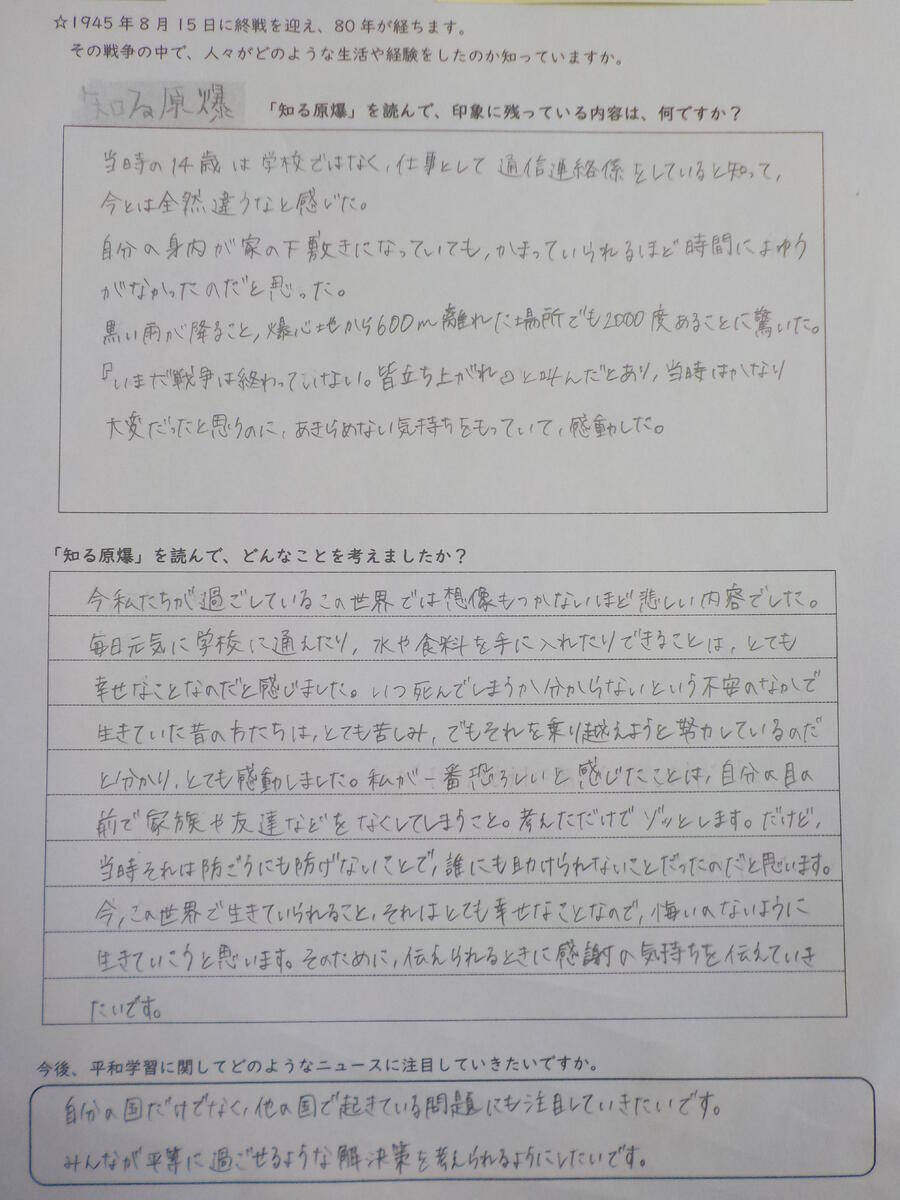 ☆1945年8月15日に終戦を迎え、80年が経ちます。
その戦争の中で、人々がどのような生活や経験をしたのか知っていますか。
知る原爆
「知る原爆」を読んで、印象に残っている内容は、何ですか？
当時の14歳は学校ではなく、仕事として通信連絡係をしていると知って、
今とは全然違うなと感じた。
自分の身内が家の下敷きになっていても、かまっていられるほど時間によゆう
がなかったのだと思った。
黒い雨が降ること、爆心地から600m離れた場所でも2000度あることに驚いた。
『いまだ戦争は終わっていない。皆立ち上がれ』と叫んだとあり、当時はかなり
大変だったと思うのに、あきらめない気持ちをもっていて、感動した。
「知る原爆」を読んで、どんなことを考えましたか？
今私たちが過ごしているこの世界では想像もつかないほど悲しい内容でした。
毎日元気に学校に通えたり、水や食料を手に入れたりできることは、とても
幸せなことなのだと感じました。いつ死んでしまうか分からないという不安のなかで
生きていた昔の方たちは、とても苦しみ、でもそれを乗り越えようと努力しているのだ
と分かり、とても感動しました。私が一番恐ろしいと感じたことは、自分の目の
前で家族や友達などをなくしてしまうこと。考えただけでゾッとします。だけど、
当時それは防ごうにも防げないことで、誰にも助けられないことだったのだと思います。
今、この世界で生きていられること、それはとても幸せなことなので、悔いのないように
生きていこうと思います。そのために、伝えられるときに感謝の気持ちを伝えていき
たいです。
今後、平和学習に関してどのようなニュースに注目していきたいですか。
自分の国だけでなく、他の国で起きている問題にも注目していきたいです。
みんなが平等に過ごせるような解決策を考えられるようにしたいです。